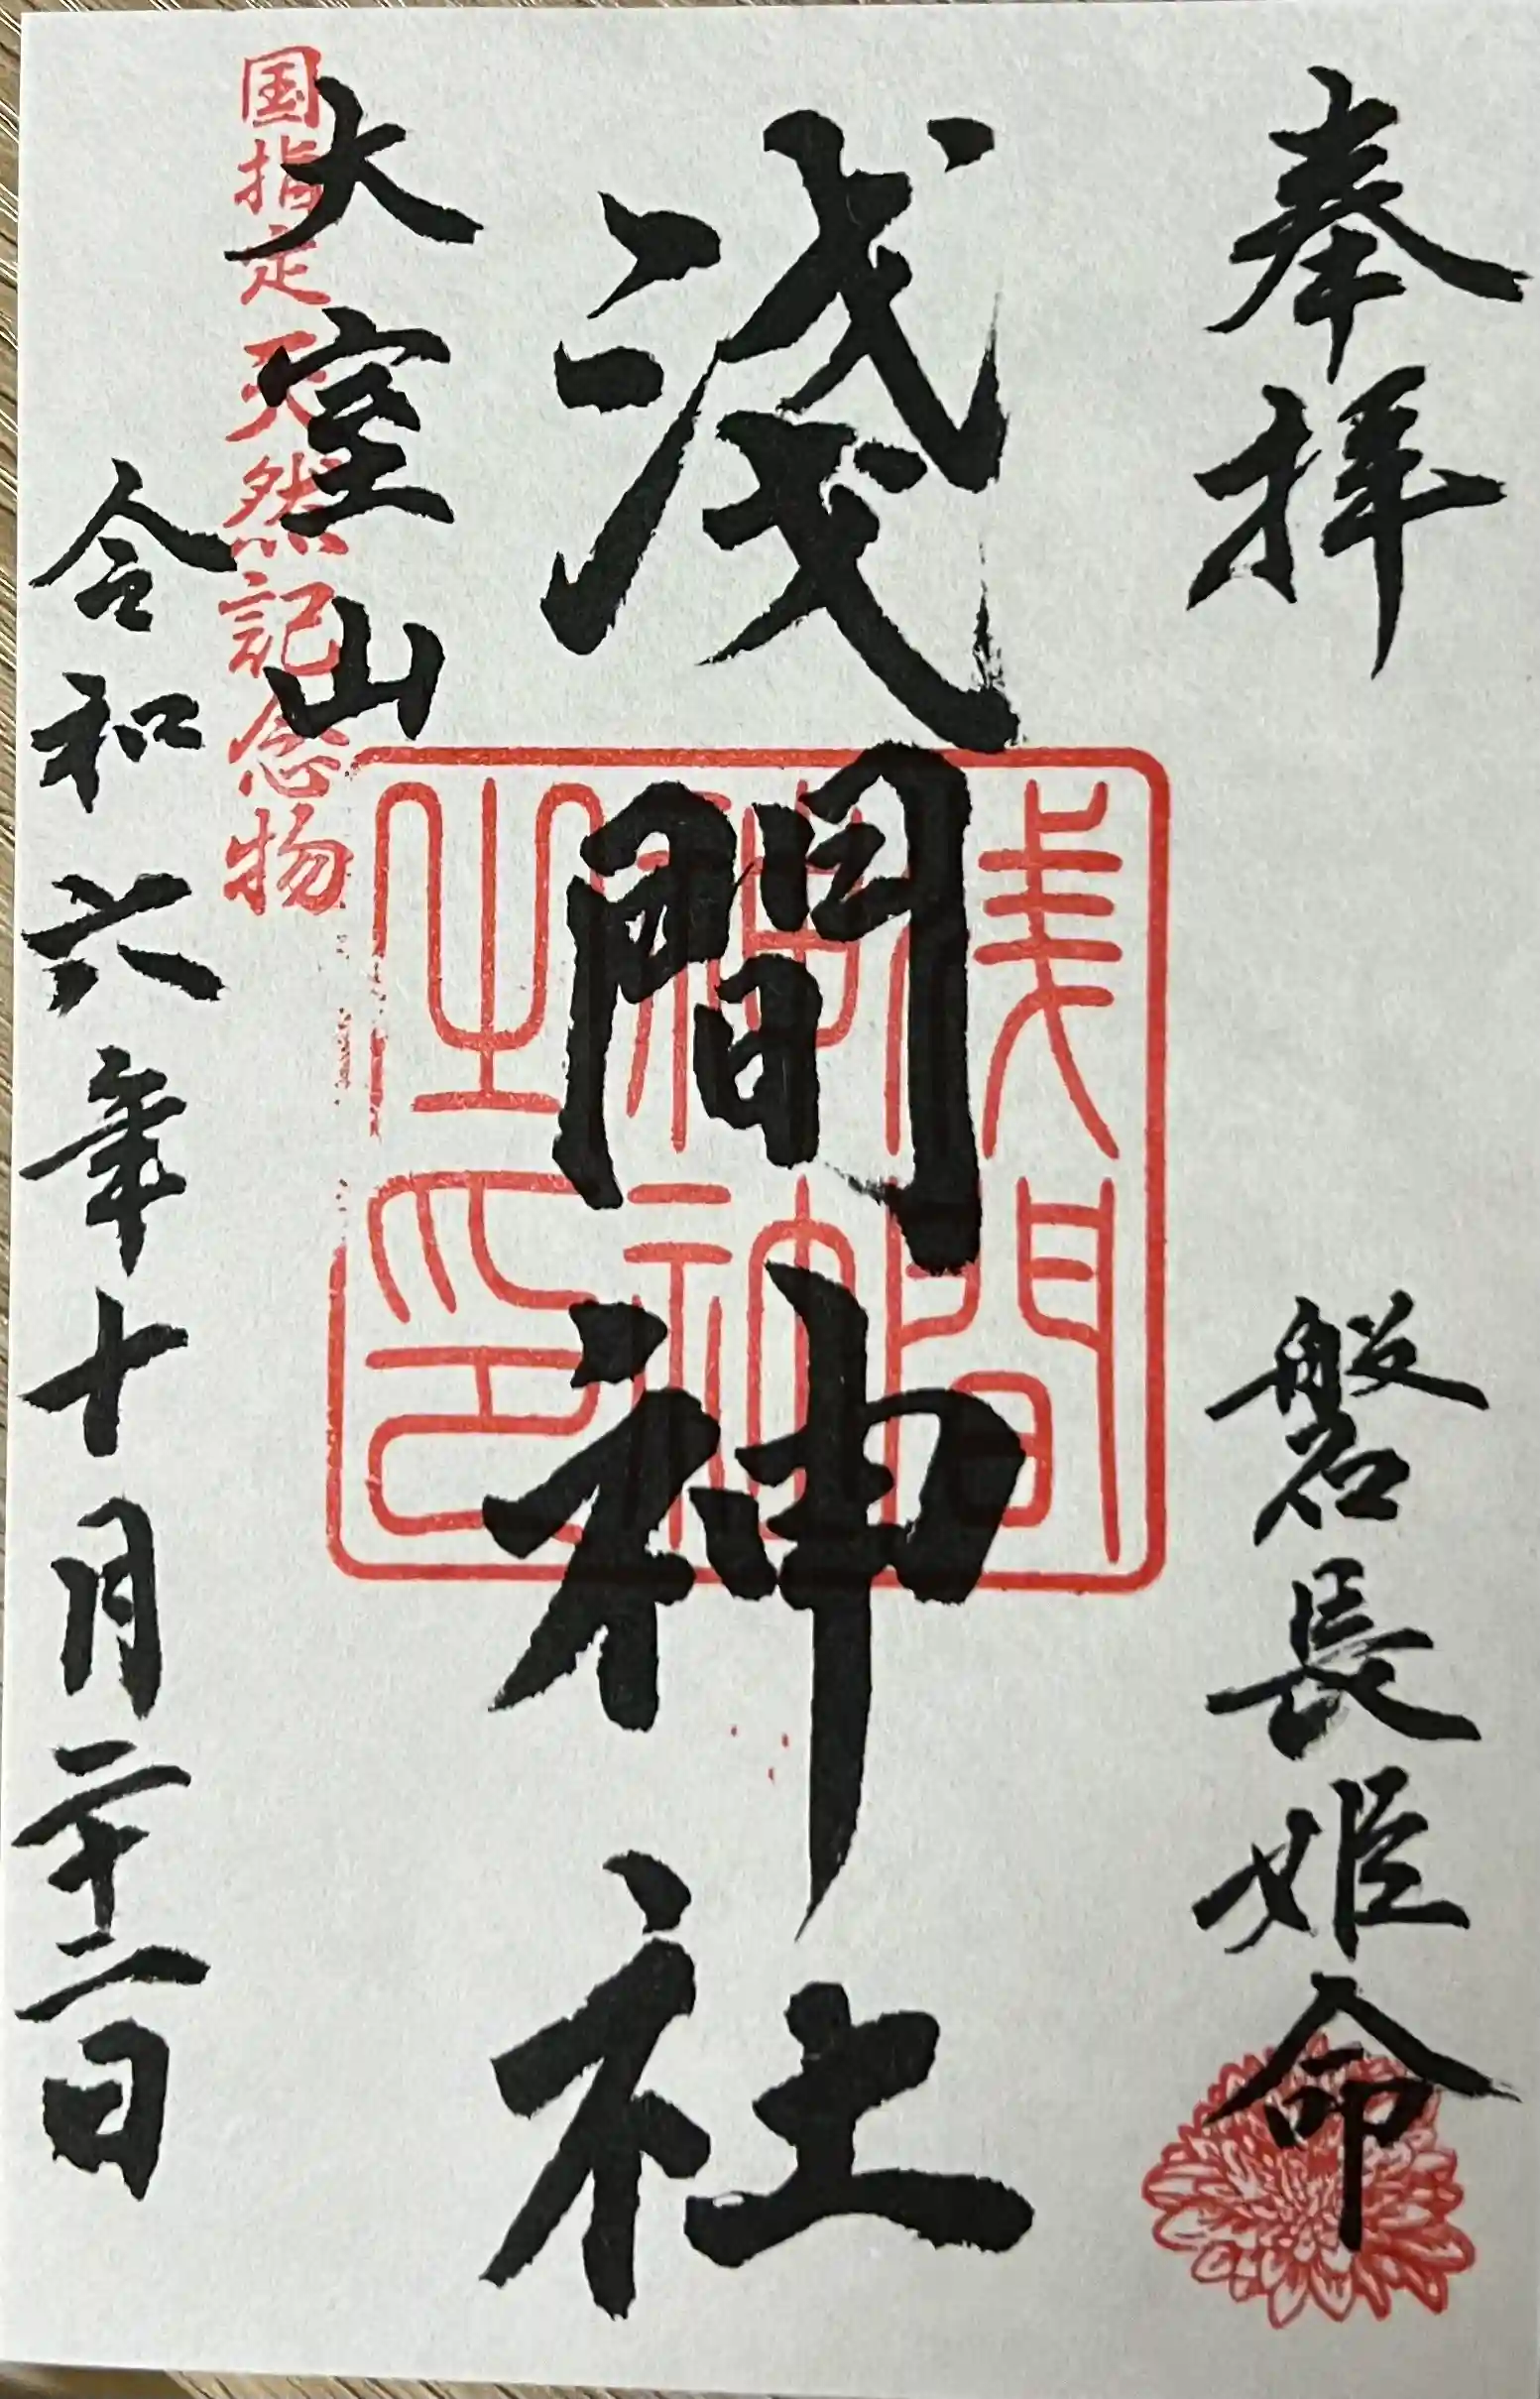 奉拝
磐長姫命
淺間神社
淺間神社之印
大室山
国指定天然記念物
令和六年十月二十二日